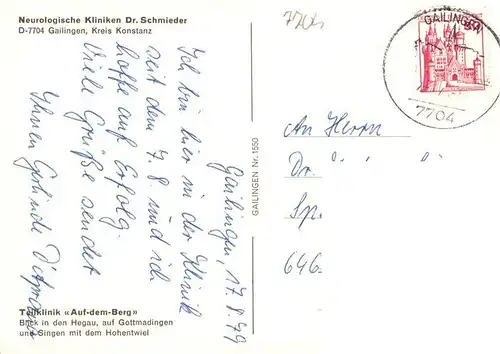 Neurologische Kliniken Dr. Schmieder
D-7704 Gailingen, Kreis Konstanz
Gailingen, 17.8.79
Ich bin hier in der Klinik
seit dem 7.8. und ich
hoffe auf Erfolg.
Viele Grüße sendet
Ihnen Gerlinde
GAILINGEN Nr. 1550
Teilklinik «Auf-dem-Berg»
Blick in den Hegau, auf Gottmadingen
und Singen mit dem Hohentwiel
GAILINGEN
7704
An Herrn
Dr.
Sp.
646.